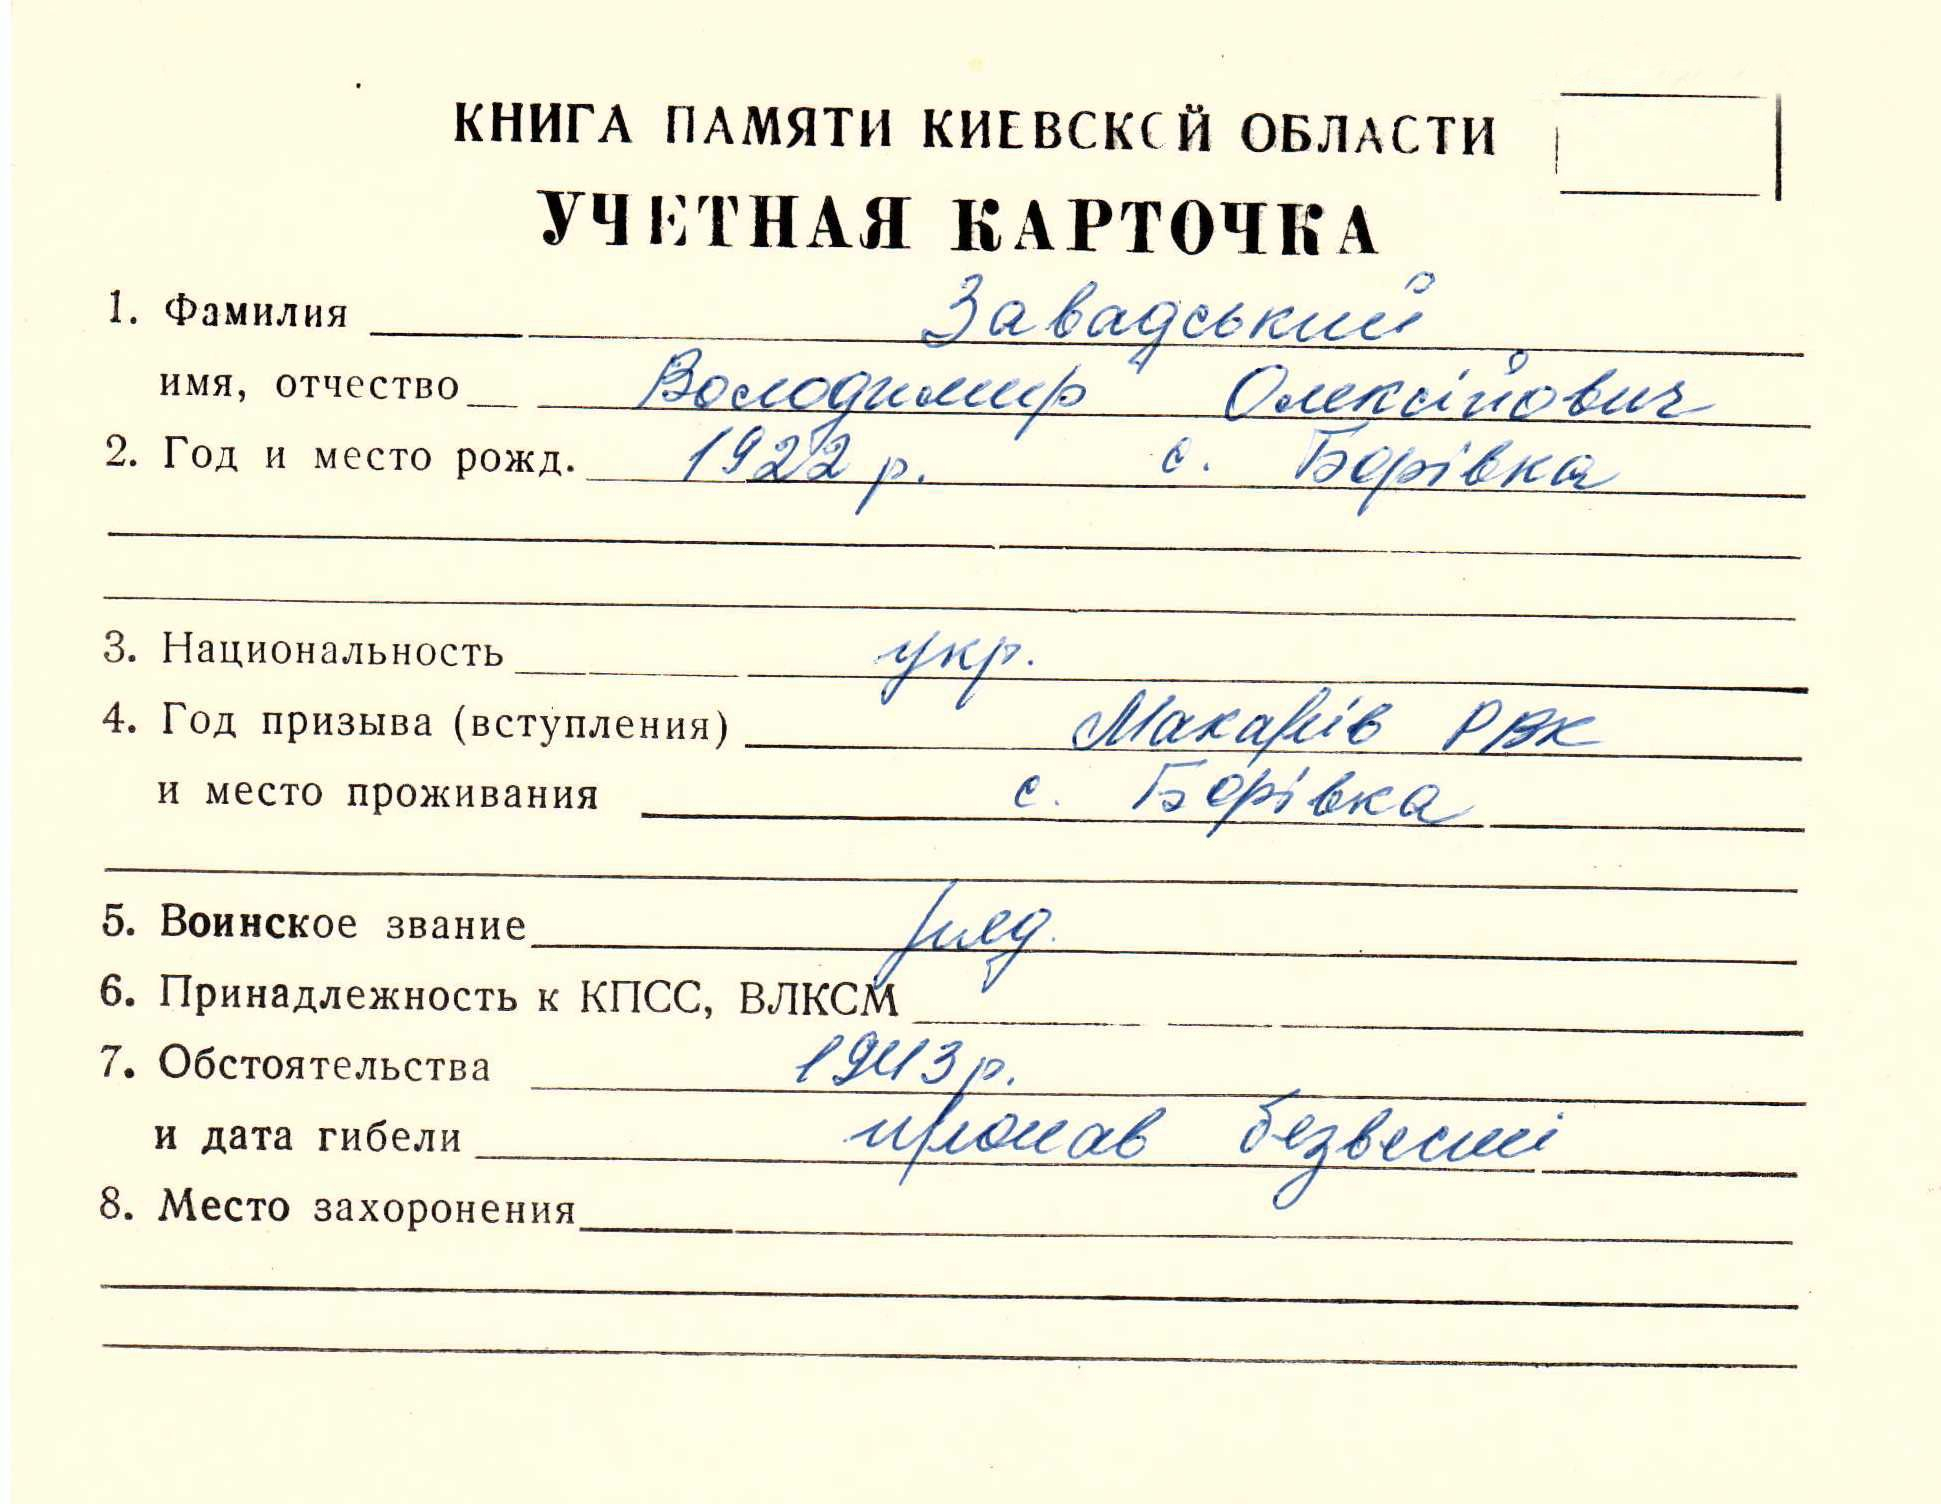 КНИГА ПАМЯТИ КИЕВСКОЙ ОБЛАСТИ
УЧЕТНАЯ КАРТОЧКА
1. Фамилия Завадський
имя, отчество Володимир Олексійович
2. Год и место рожд. 1922 р. с. Борівка
3. Национальность укр.
4. Год призыва (вступления) Макарів РВК
и место проживания с. Борівка
5. Воинское звание ряд.
6. Принадлежность к КПСС, ВЛКСМ
7. Обстоятельства 1943 р.
и дата гибели пропав безвесті
8. Место захоронения